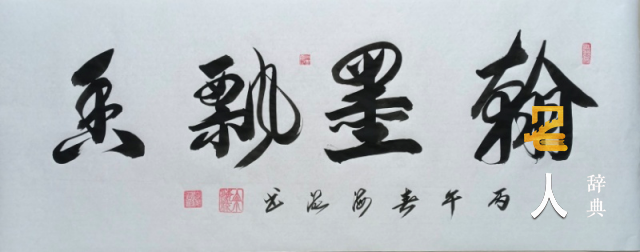 翰墨飘香
丙午春
名人
辞典